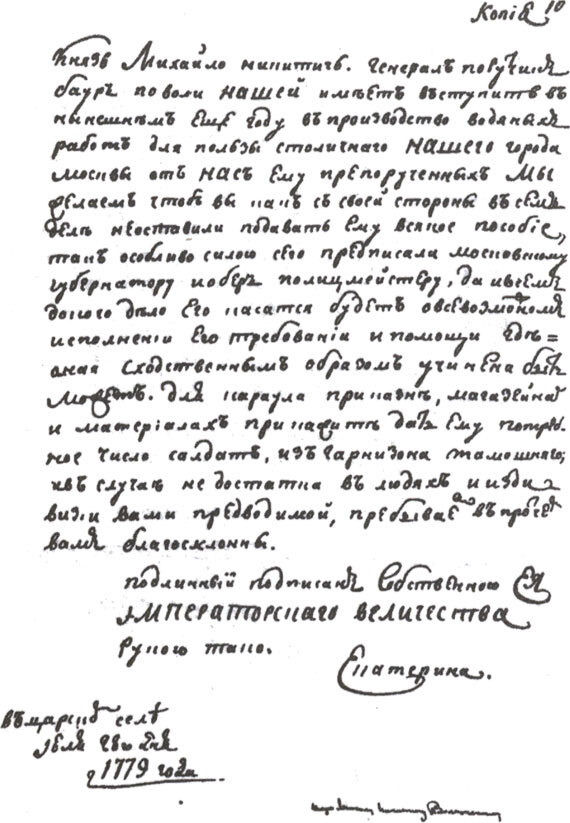 Копiя 10
Князь Михайло никитичь. генералъ поручикъ
бауръ по воли нашей имѣетъ въступить въ
нынешнемъ еще году въ производство водяныхъ
работъ для пользы столичнаго нашего города
москвы отъ насъ ему препорученныхъ Мы
желаемъ чтобъ вы какъ съ своей стороны въ семъ
дѣлѣ неоставили подавать ему всякое пособiе,
такъ особливо силою сего предписали московскому
губернатору иоберъ полицмейстеру, да ивсемъ
докого дѣло его касатся будетъ овсевозможномъ
исполненiи его требованiи и помощи едѣ=
аная сходственнымъ образомъ учинена быть
можетъ. для караула приказнъ, магазейнахъ
и матерiалахъ прикажите дать ему потреб.
ное число салдатъ, изъ гарнизона тамошняго;
ивъ случаю не достатка въ людяхъ и изди
визiи вами предводимой, пребывае въ протчем
вамъ благосклонны.
подлинный подписанъ Собственною ЕЯ
имПЕРаторскаго величества
рукого тако.
Екатерина.
въ царскомъ селѣ
iюля 28го дня
1779 года